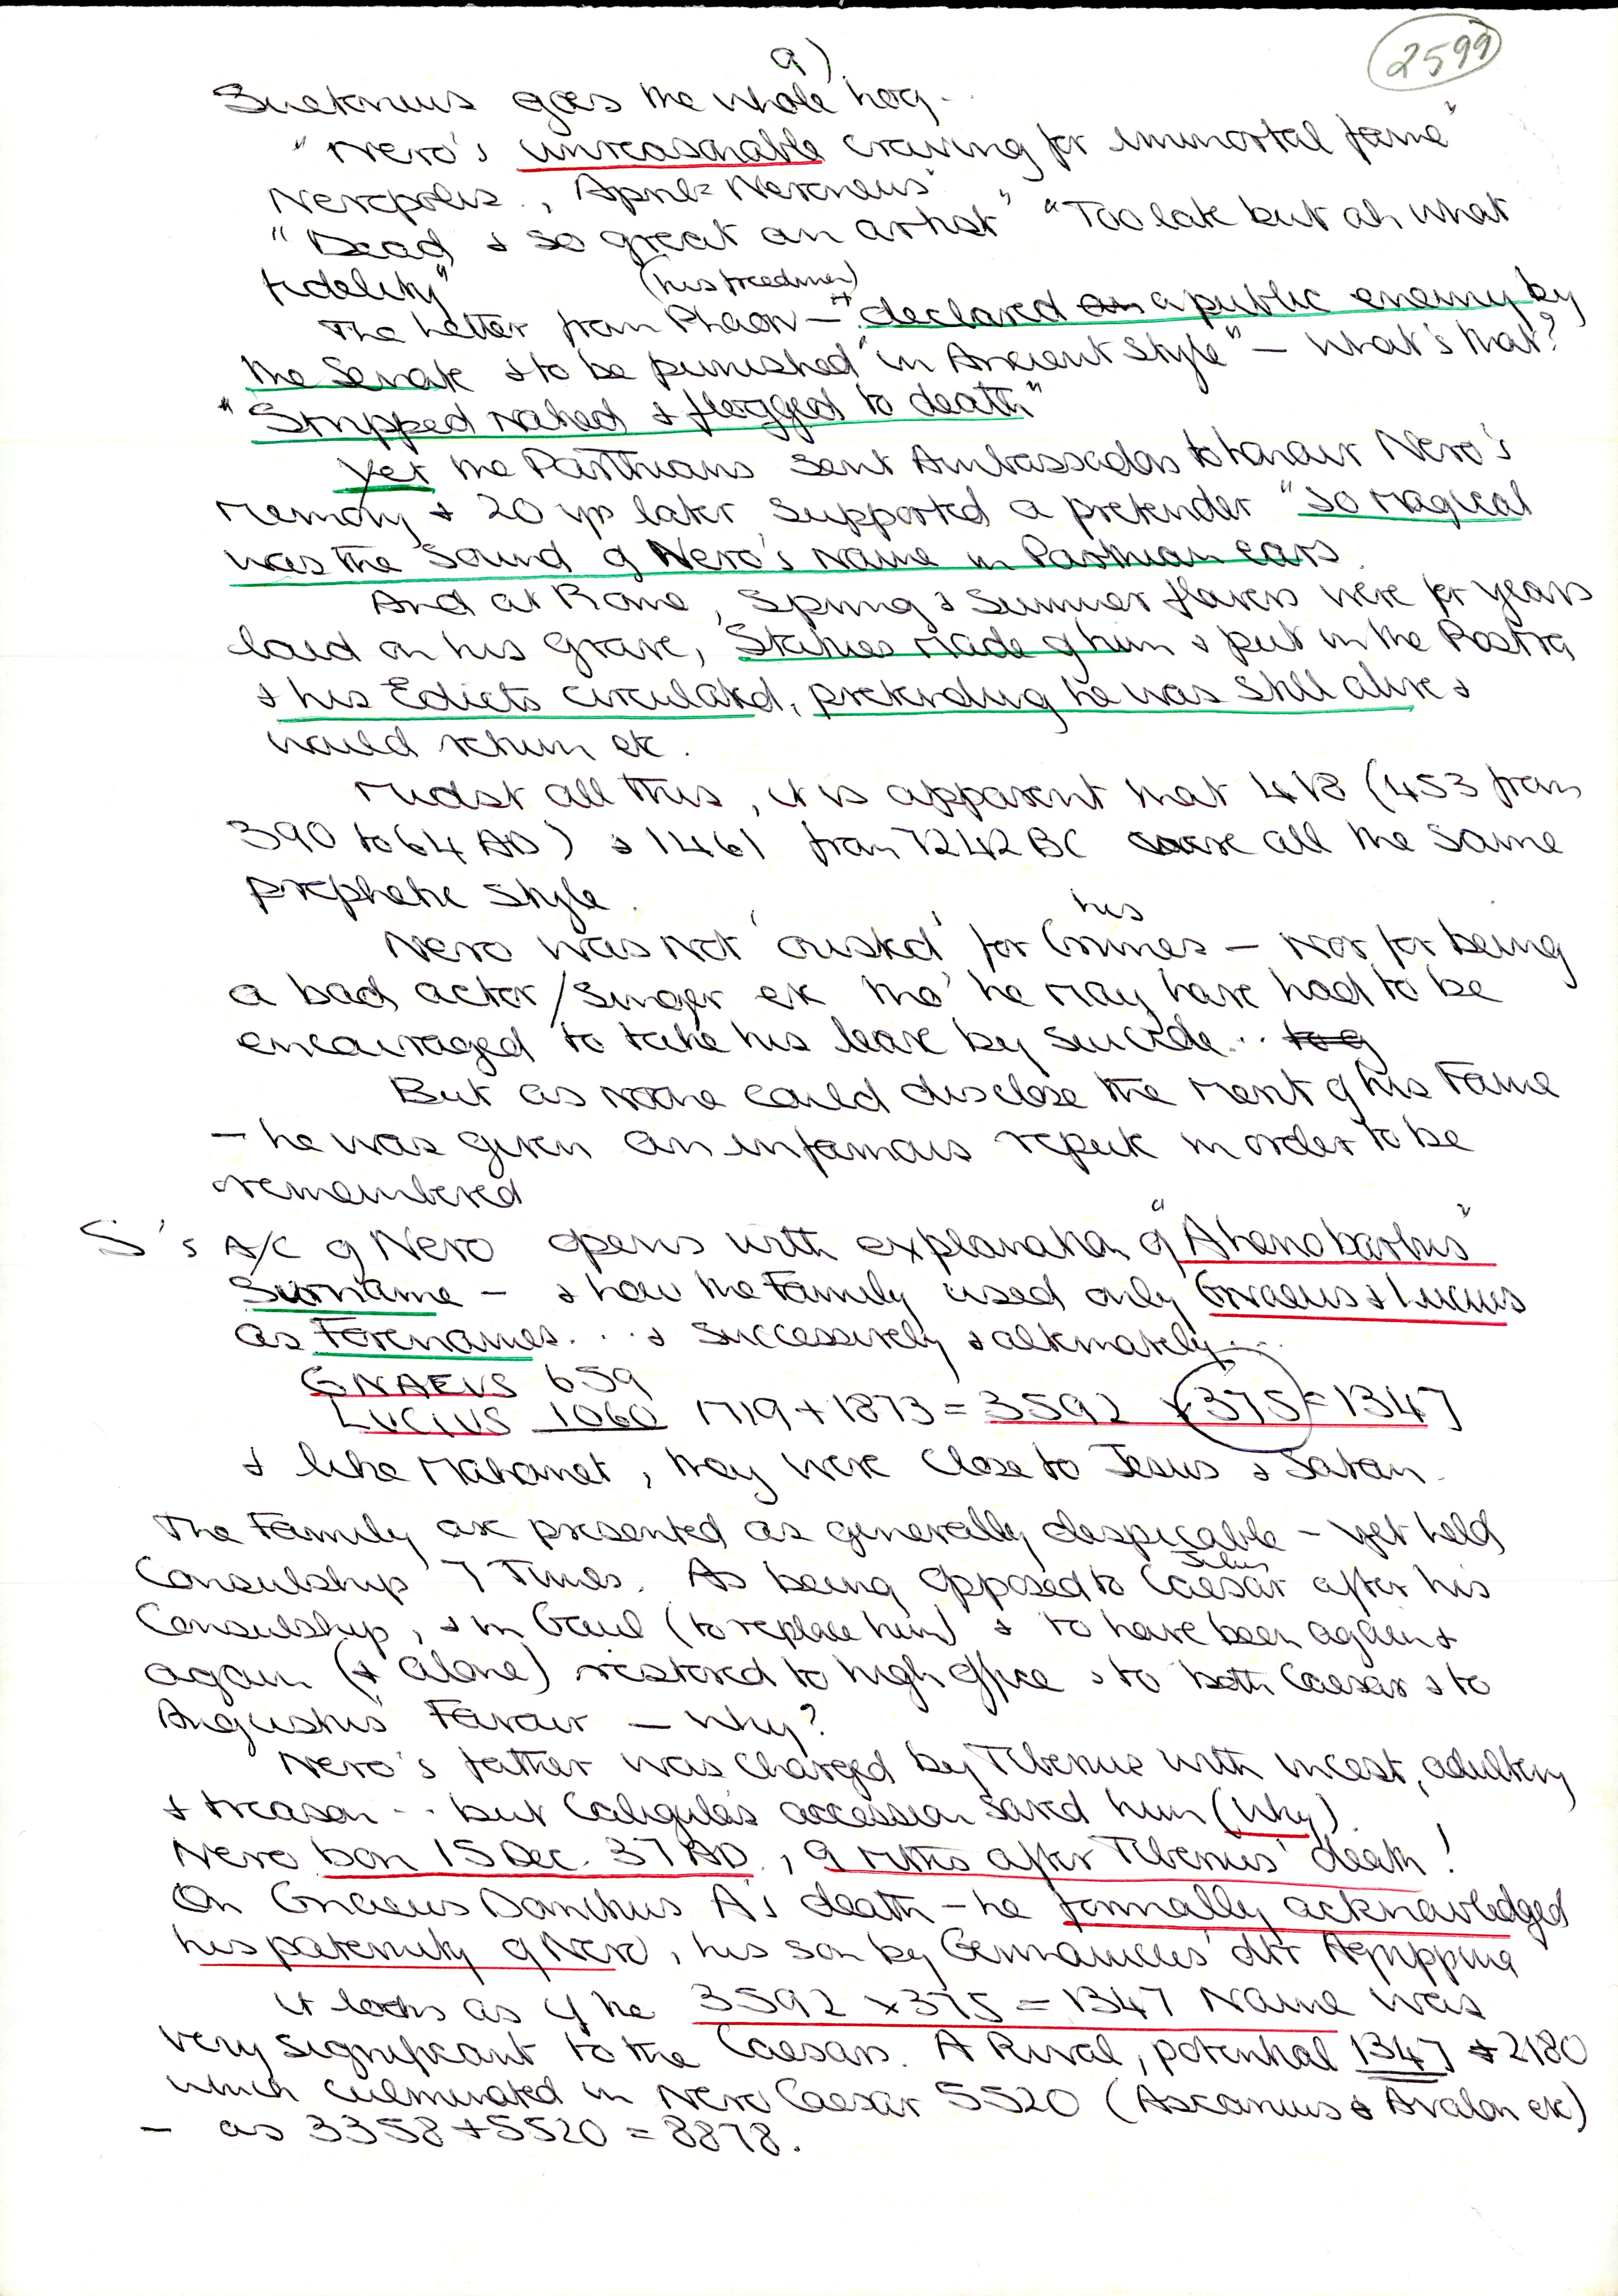 2599
9)
Suetonius goes the whole hog..
"Nero's unreasonable craving for immortal fame"
Neropolis., April = Neroneus"
"Dead & so great an artist" "Too late but ah what
fidelity"
(his freedman)
The Letter from Phaon – "declared a public enemy by
the Senate & to be punished "in Ancient Style" – What's that?
"Stripped naked & flogged to death"
Yet the Parthians sent Ambassadors to honour Nero's
Memory & 20 yrs later supported a pretender "So Magical
was the Sound of Nero's Name in Parthian ears.
And at Rome, Spring & Summer flowers were for years
laid on his Grave, Statues made of him & put in the Rostra
& his Edicts circulated, pretending he was still alive &
would return etc.
Midst all this, it is apparent that 418 (453 from
390 to 64 AD) & 1461 from 7242 BC are all the same
prophetic style.
his
Nero was not 'ousted' for Crimes – Nor for being
a bad actor/singer etc tho' he may have had to be
encouraged to take his leave by suicide...
But as Noone could disclose the Merit of his Fame
– he was given an infamous repute in order to be
remembered
S's A/C of Nero opens with explanation of "Ahenobarbus"
Surname – & how the Family used only Gnaeus & Lucius
as Forenames... & successively & alternately....
GNAEUS 659
LUCIUS 1060 1719 + 1873 = 3592 x 375 = 1347
& like Mahomet, they were close to Jesus & Satan.
The Family are presented as generally despicable – yet held
Consulship 7 Times. As being opposed to Julius Caesar after his
Consulship, & in Gaul (to replace him) & to have been again &
again (& alone) restored to high office & to both Caesar & to
Augustus' Favour – Why?
Nero's father was charged by Tiberius with incest, adultery
& treason -- but Caligula's accession saved him (Why)
Nero born 15 Dec. 37 AD., 9 mths after Tiberius' death!
On Gnaeus Domitius A's death – he formally acknowledged
his paternity of Nero, his son by Germanicus' dtr Agrippina
It looks as if the 3592 x 375 = 1347 Name was
very significant to the Caesars. A Rival, potential 1347 & 2180
which culminated in Nero Caesar 5520 (Ascanius & Avalon etc)
– as 3358 + 5520 = 8878.